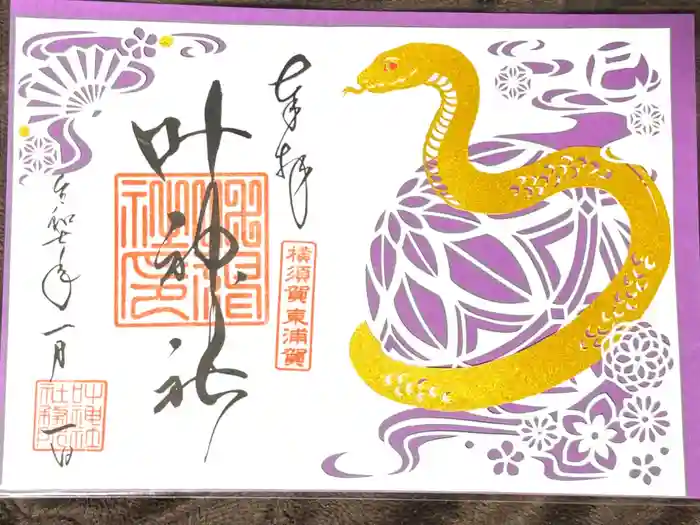 奉拝
横須賀東浦賀
叶神社
令和七年一月一日
叶神社
社務所
巳